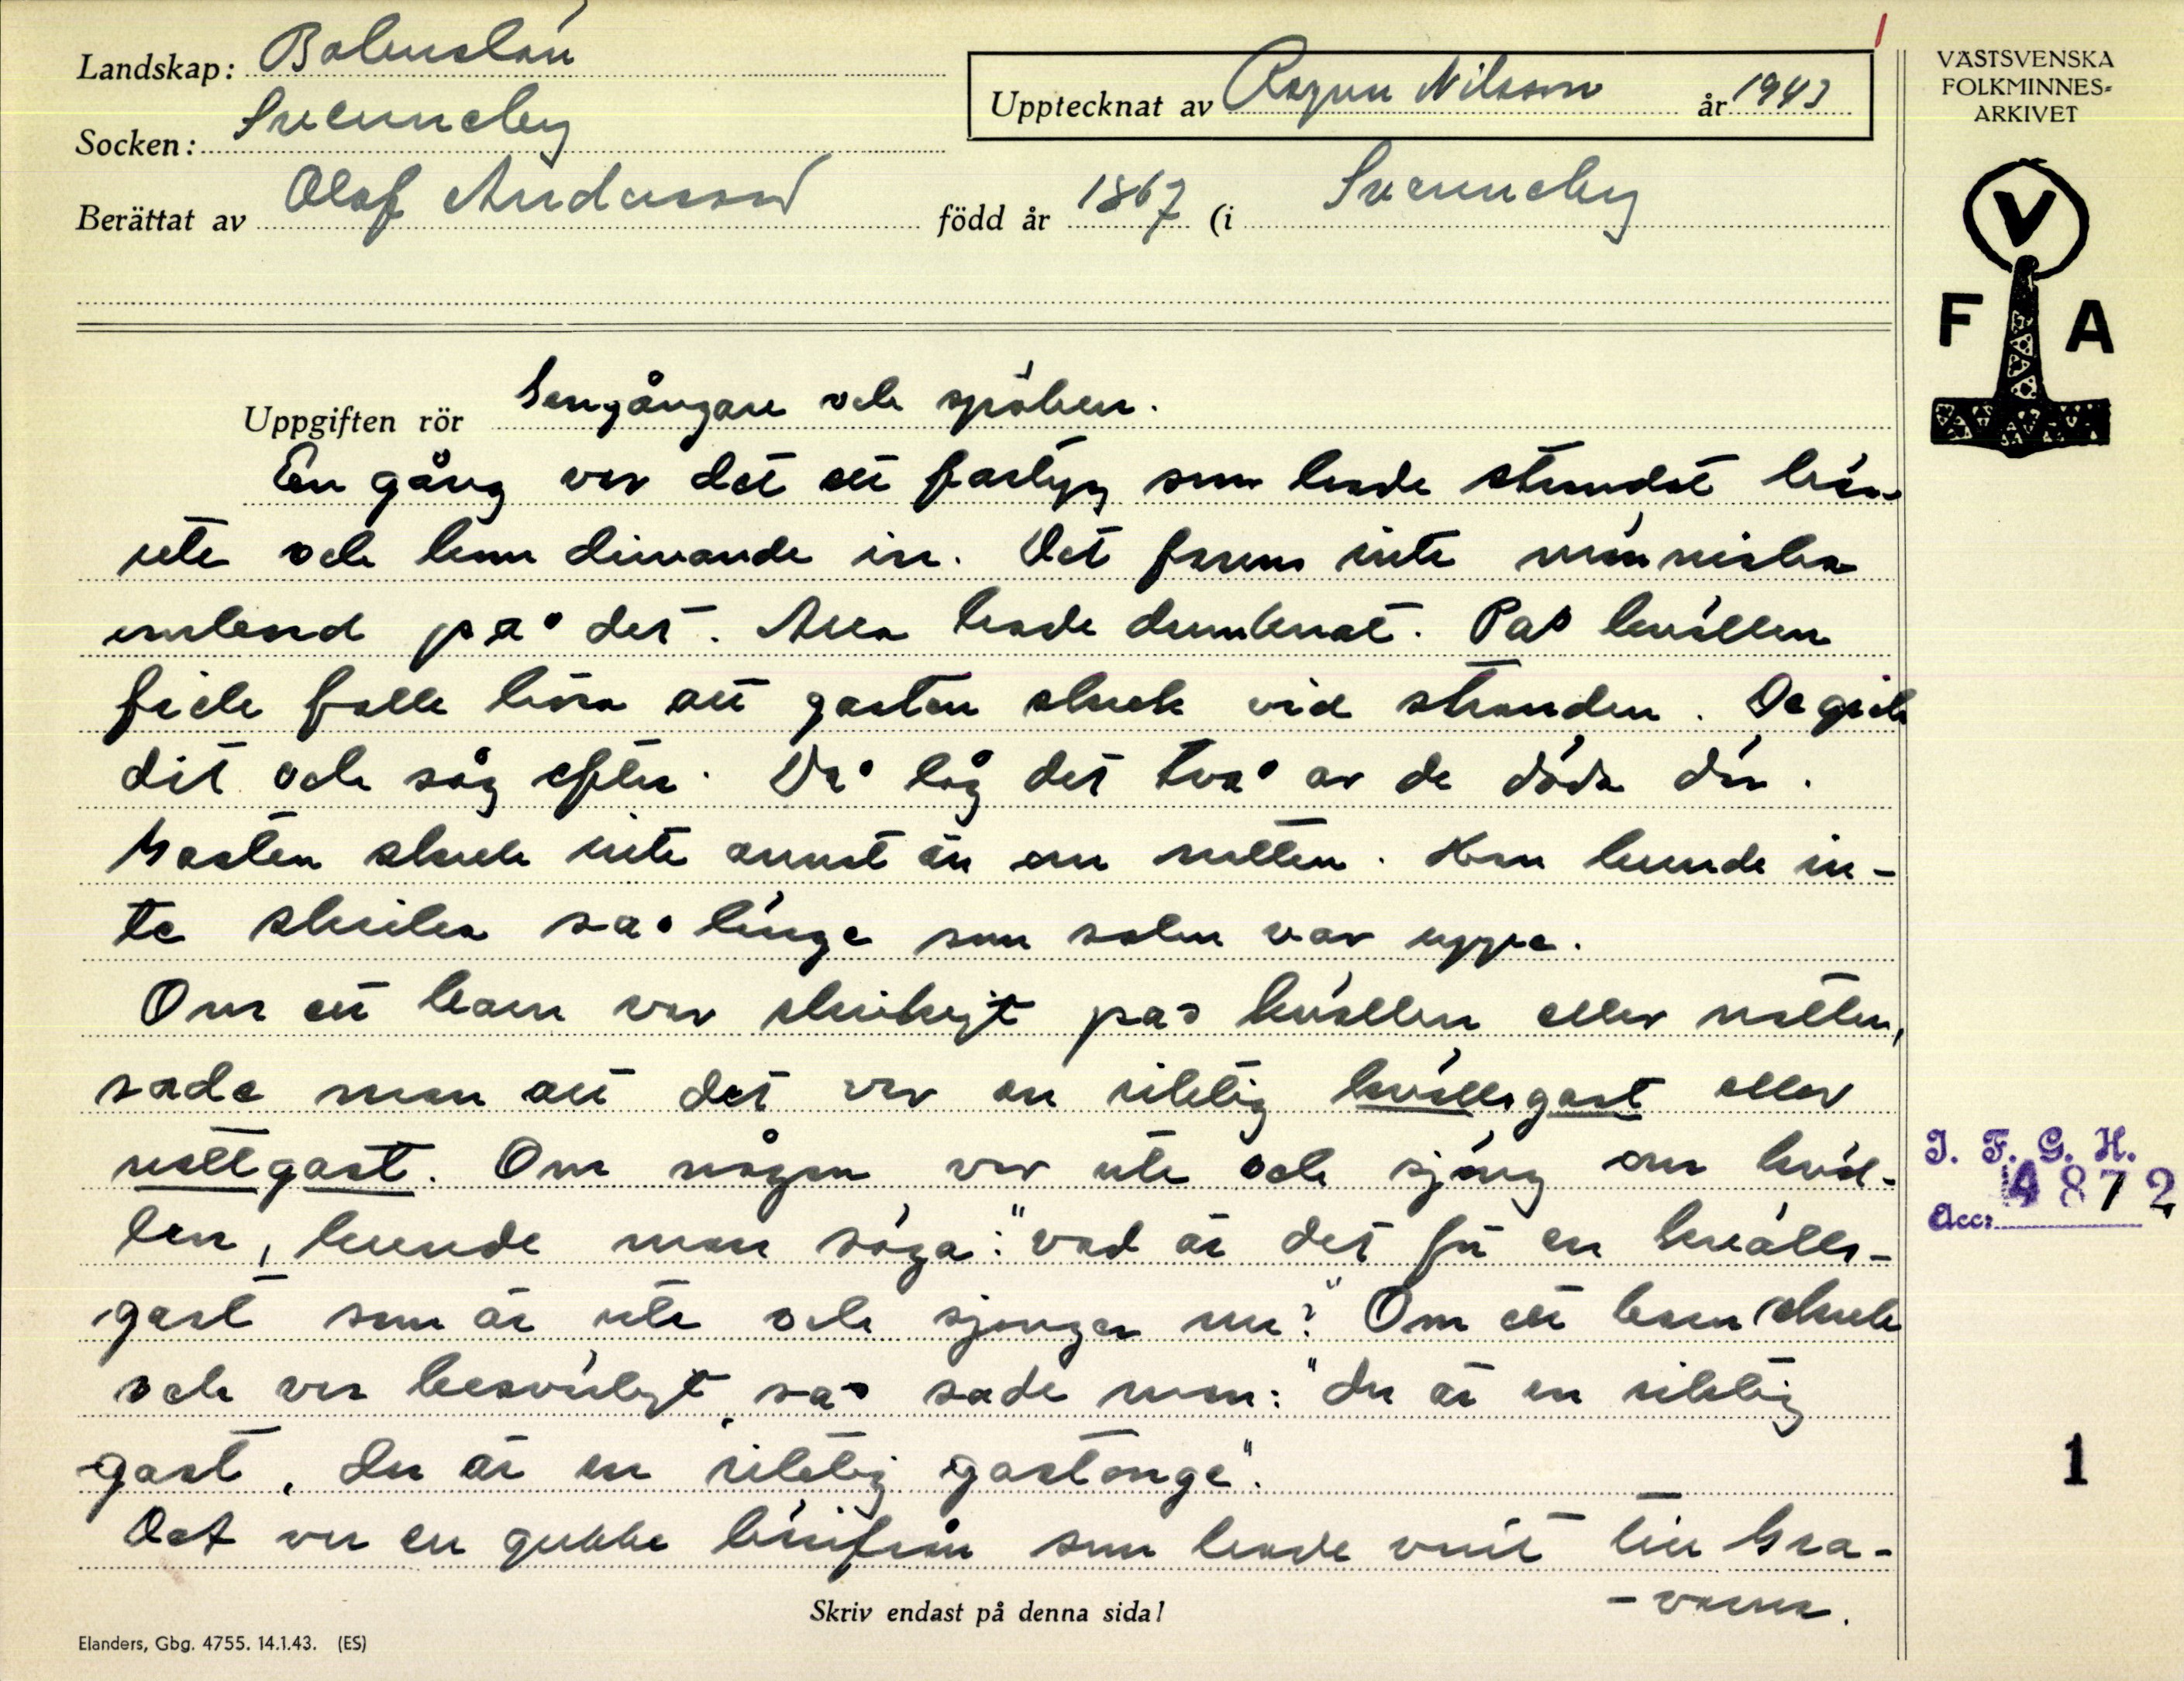 Landskap: Bohuslän
Socken: Svenneby
Upptecknat av Ragnar Nilsson år 1943
Berättat av Olof Andersson född år 1867 (i Svenneby
VÄSTSVENSKA
FOLKMINNES-
ARKIVET
V
F A
Uppgiften rör Gengångare och spöken.
En gång var det ett fartyg som hade strandat här
ute och kom drivande in. Det fanns inte människa
ombord på det. Alla hade drunknat. På kvällen
fick folk höra att gasten skrek vid stranden. De gick
dit och såg efter. Då låg det två av de döda där.
Gasten skrek inte annat än om natten. Han kunde in-
te skrika så länge som solen var uppe.
Om ett barn var skrikigt på kvällen eller natten,
sade man att det var en riktig kvällsgast eller
nattgast. Om någon var ute och sjöng om kväl-
len, kunde man säga: "vad är det för en kvälls-
gast som är ute och sjunger nu?" Om ett barn skrek
och var besvärligt, så sade man: "du är en riktig
gast, du är en riktig gastonge".
Det var en gubbe härifrån som hade varit till Gra-
-varna.
Skriv endast på denna sida!
Elanders, Gbg. 4755. 14.1.43. (ES)
I. F. G. H.
4872
Acc:
1